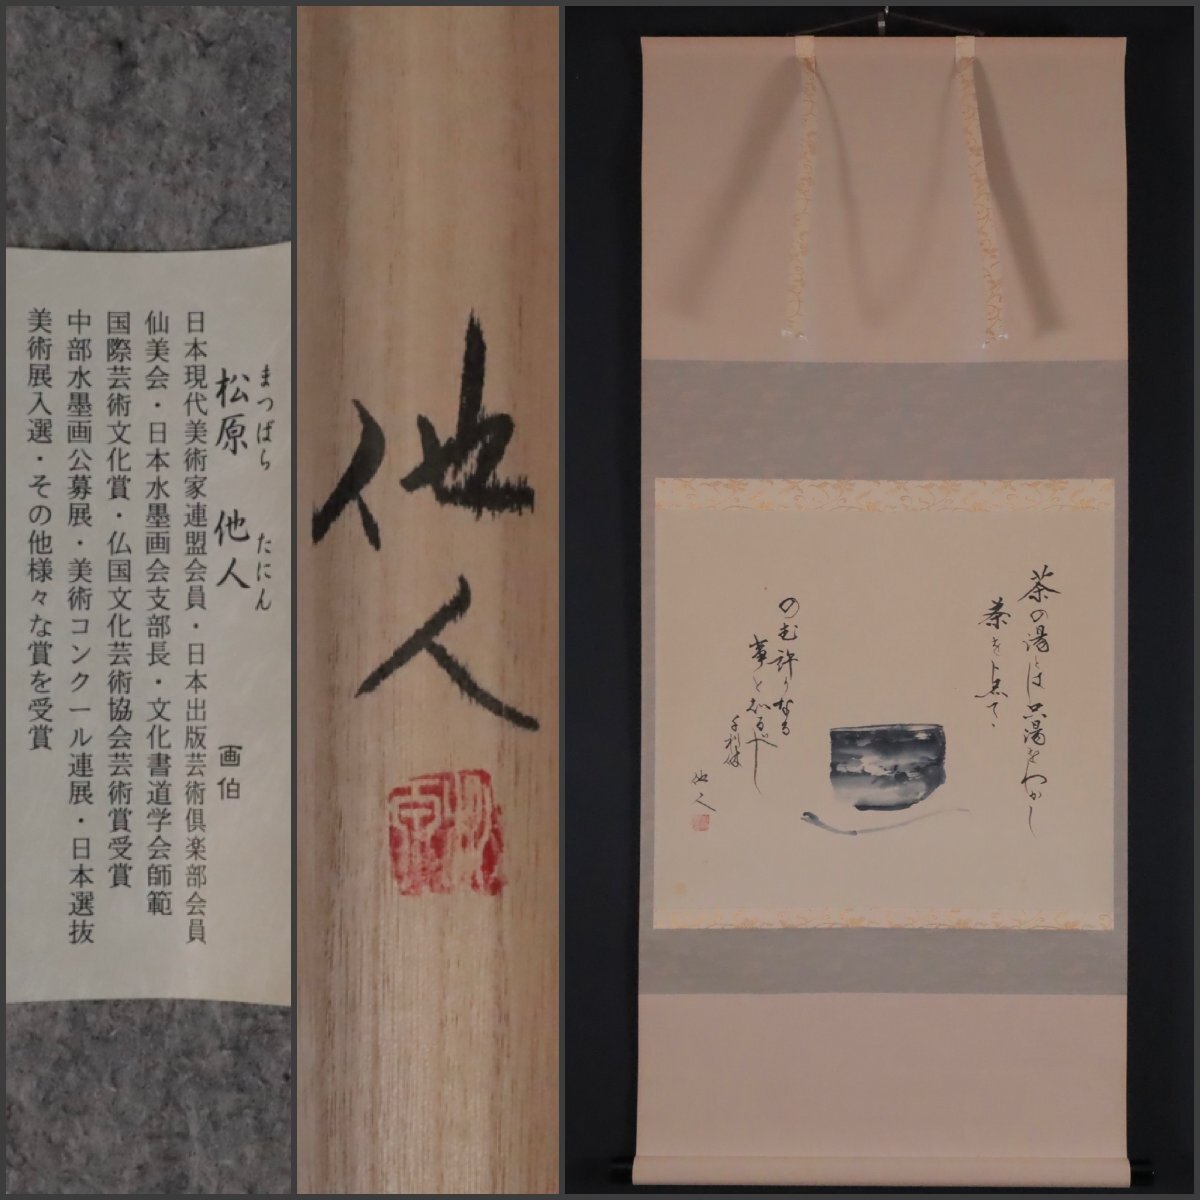 まつばら たにん
松原 他人 画伯
日本現代美術家連盟会員・日本出版芸術倶楽部会員
仙美会・日本水墨画会支部長・文化書道学会師範
国際芸術文化賞・仏国文化芸術協会芸術賞受賞
中部水墨画公募展・美術コンクール連展・日本選抜
美術展入選・その他様々な賞を受賞
他人
茶の湯とは只湯をわかし
茶を点て
のむ許りなる
事と知るべし
千利休
他人